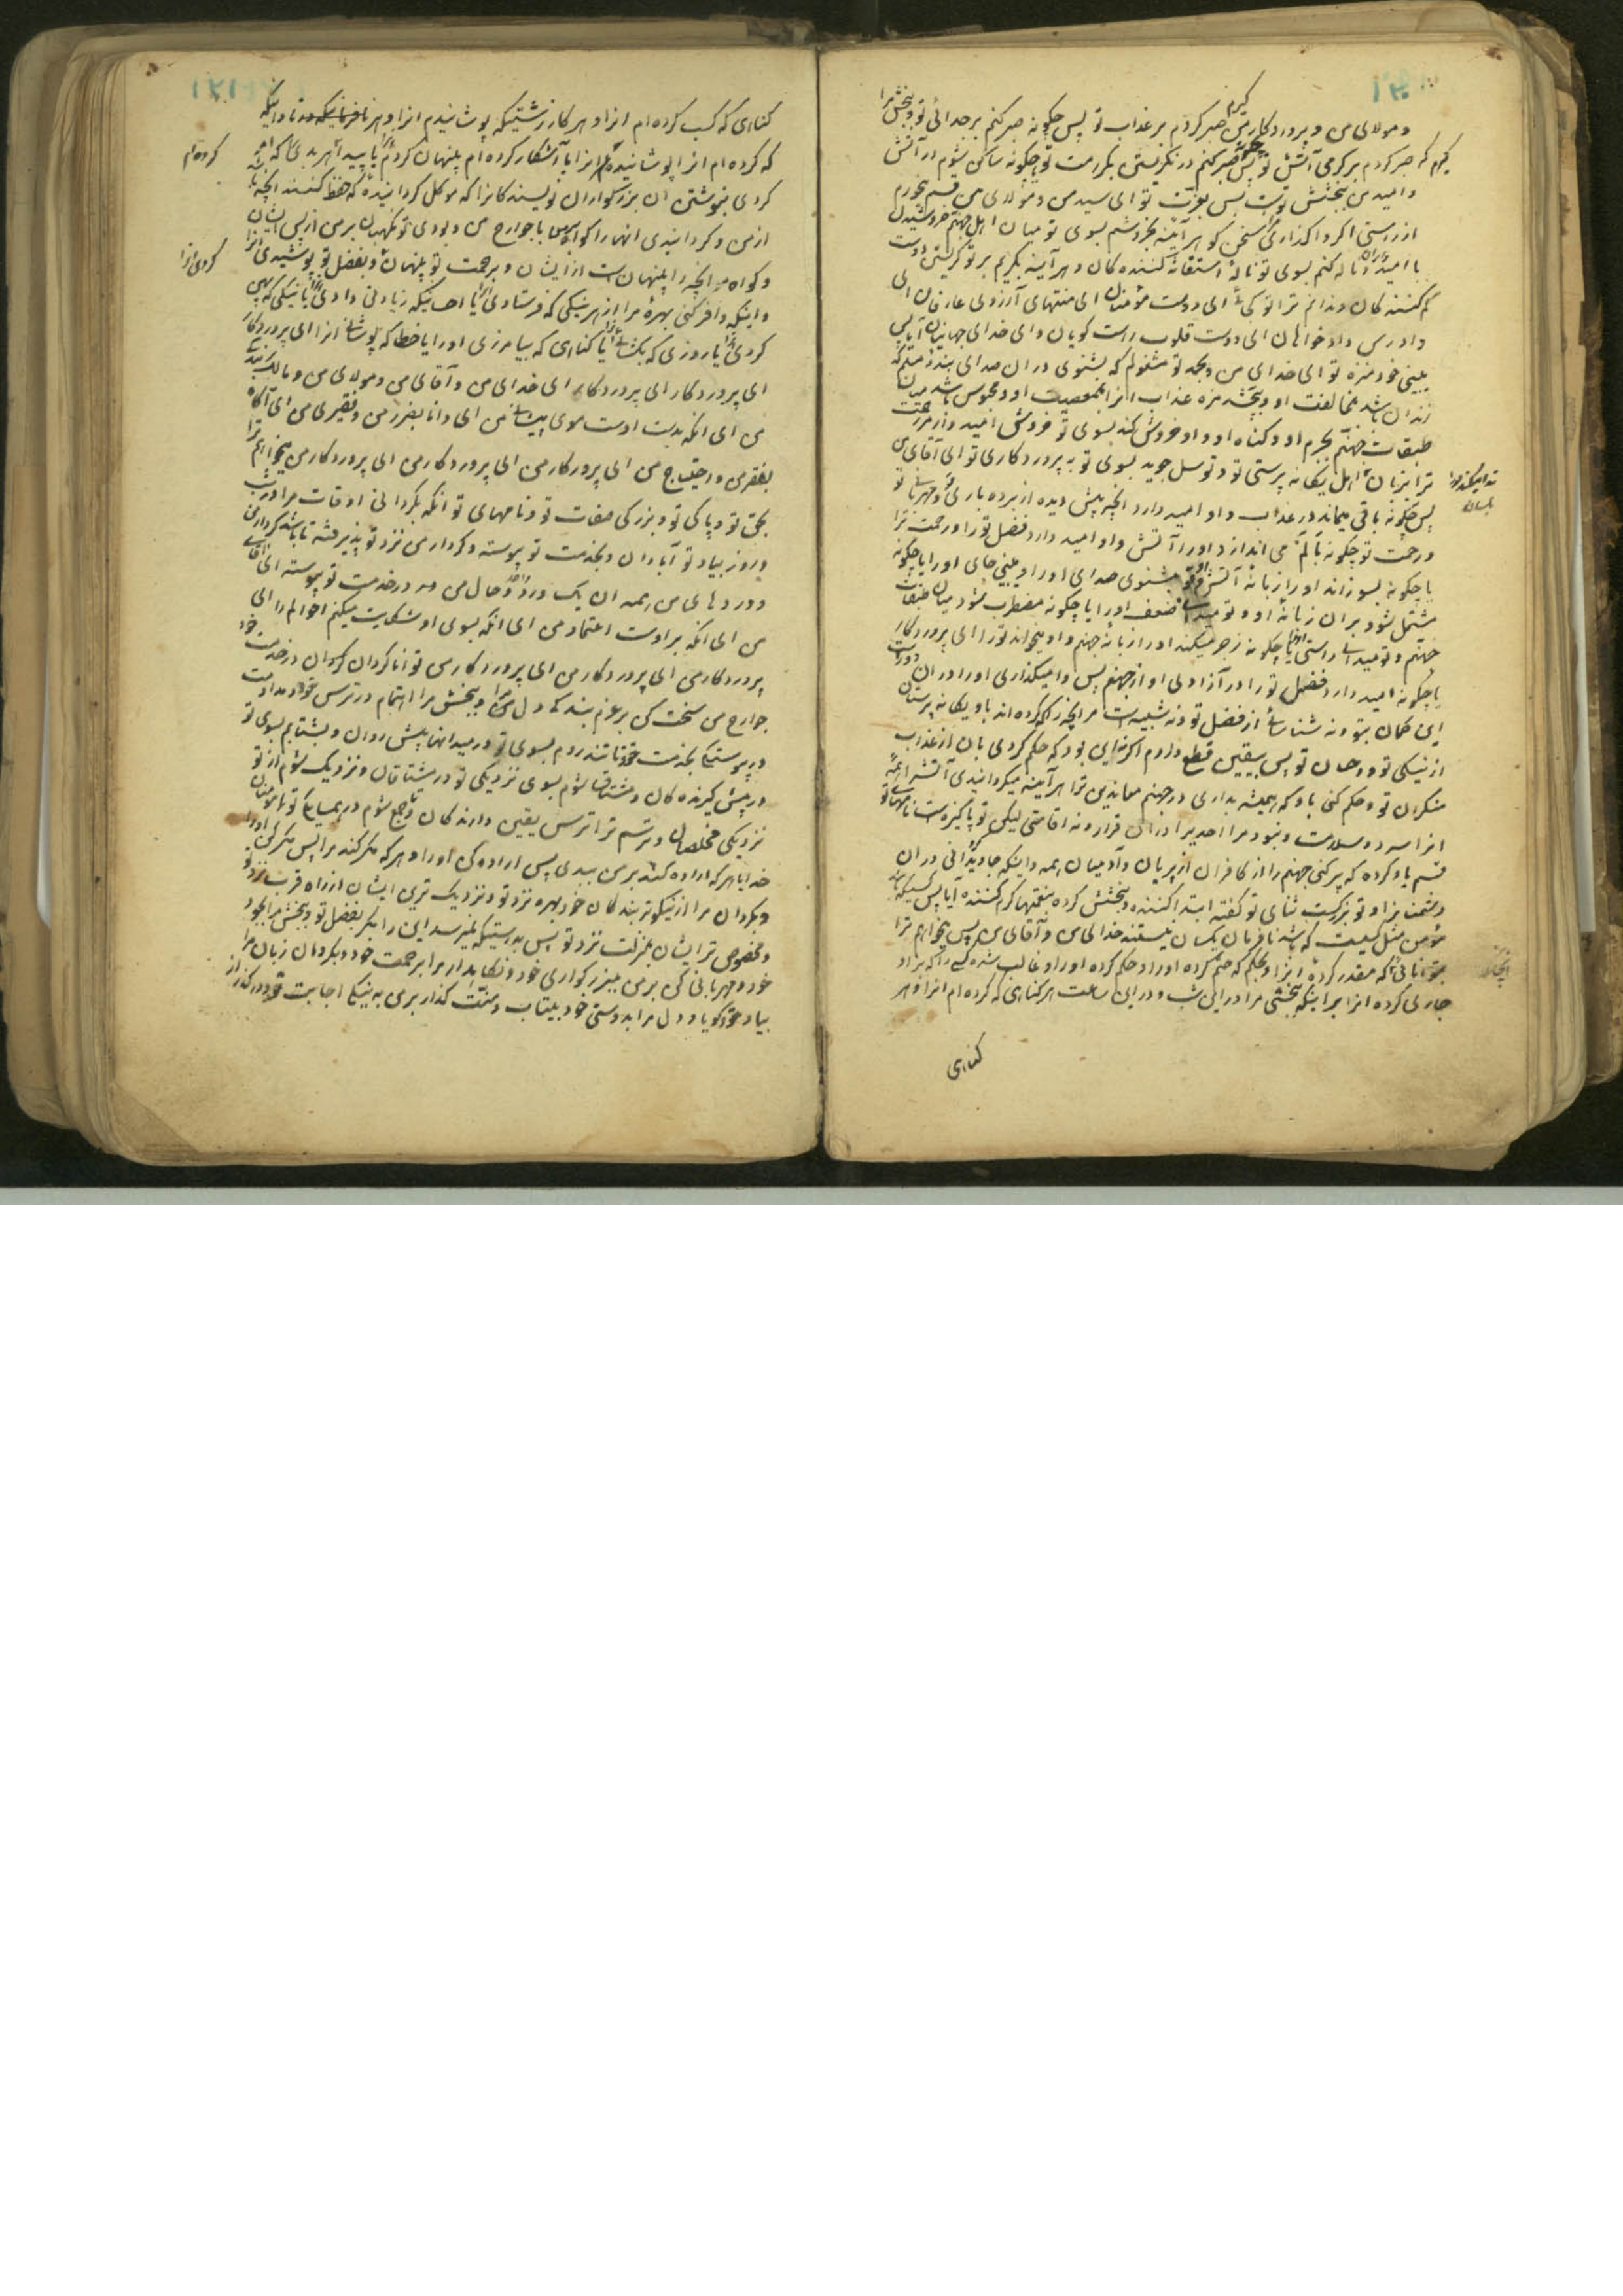 و مولای من و پروردکار من کیرم صبر کردم بر عذاب تو پس چکونه صبر کنم بر جدائی تو و ببخش مرا
کیرم که صبر کردم بر کرمی آتش تو پس چکونه صبر کنم در نکریستن بکرامت تو یا چکونه ساکن شوم در آتش
و امید من بخشش تو است پس بعزت تو ای سید من و مولای من قسم میخورم
از راستی اکر واکذاری مرا سخن کو هر آینه بخروشم بسوی تو میان اهل جهنم خروشیدن
با امیدواران و ناله کنم بسوی تو نالهٔ استغاثه کننده کان و هر آینه بکریم بر تو کریستن
کم کننده کان و ندا کنم ترا تو کجائی ای دوست مؤمنان ای منتهای آرزوی عارفان ای
دادرس دادخواهان ای دوست قلوب راست کویان و ای خدای جهانیان آیا پس
ببینی خود منزه تو ای خدای من و بحمد تو مشغولم که بشنوی در ان صدای بنده مسلم که
زندان باشد بمخالفت او و بچشد مزه عذاب انرا بمعصیت او و محبوس باشد میان
طبقات جهنم بجرم او و کناه او و او خروش کند بسوی تو خروش امیدوار مر رحمت
ترا بزبان اهل یکانه پرستی تو و توسل جوید بسوی تو به پروردکاری تو ای آقای من
پس چکونه باقی میماند در عذاب و او امید دارد انچه پیش دیده از بردباری تو و مهربانی تو
و رحمت تو یا چکونه بالم می اندازد او را آتش و او امید دارد فضل تو را و رحمت ترا
یا چکونه بسوزاند او را زبانهٔ آتش و تو بشنوی صدای او را و ببینی جای او را یا چکونه
مشتمل شود بر ان زبانهٔ او و تو میدانی ضعف او را یا چکونه مضطرب شود میان طبقات
جهنم و تو میدانی راستی او را یا چکونه زجر میکند او را زبانه جهنم و او میخواند تو را ای پروردکار
یا چکونه امید دارد فضل تو را در آزادی او از جهنم پس وامیکذاری او را در ان دور است
این کمان بتو و نه شناسائی از فضل تو و نه شبیه است مر انچه را که کرده اند با و یکانه پرستان
از نیکی تو و احسان تو پس بیقین قطع دارم اکر نه این بود که حکم کردی بان از عذاب
منکران تو و حکم کنی باو که همیشه بداری در جهنم معاندین ترا هر آینه میکردانیدی آتش را همهٔ
انرا سرد و سلامت و نبود مر احدیرا در ان قرار و نه اقامتی لیکن تو پاکیزه است نامهای تو
قسم یاد کرده که پر کنی جهنم را از کافران از پریان و آدمیان همه و اینکه جاویدانی در ان
دشمنانرا و تو بزرکست ثنای تو کفته ابتدا کننده و بخشش کرده بنعمتها کرم کننده آیا پس کسیکه باشد
مؤمن مثل کسیست که باشد نافرمان یکسان نیستند خدای من و آقای من پس میخواهم ترا
بتوانائی که مقدر کردهٔ انرا و بحکم که حتم کرده او را و حکم کرده او را و غالب شده کسی را که بر او
جاری کرده انرا بر اینکه ببخشی مرا در این شب و در این ساعت هر کناهی که کرده ام انرا و هر
کناهی
کناهی که کسب کرده ام انرا و هر کار زشتیکه پوشانیدم انرا و هر نادانیکه
که کرده ام انرا پوشانیده ام انرا یا آشکار کرده ام پنهان کردم یا پیدا هر بدی که امر
کرده ام
کردی بنوشتن ان بزرکواران نویسنده کانرا که موکل کردانیدهٔ که حفظ کنند انچه باشد
از من و کردانیدی انها را کواهان با جوارح من و بودی تو نکهبان بر من از پس ایشان
و کواه مر انچه را پنهان است از ایشان و برحمت تو پنهان و بفضل تو پوشیدی انرا
کردی انرا
و اینکه وافر کنی بهرهٔ مرا از هر نیکی که فرستادی یا احسانیکه زیادتی دادی یا نیکی که پهن
کردی یا روزی که بکشائی یا کناهی که بیامرزی او را یا خطا که پوشانی انرا ای پروردکار
ای پروردکار ای پروردکار ای خدای من و آقای من و مولای من و مالک بندکی
من ای انکه بدست اوست موی پیشانی من ای دانا بضرر من و فقیری من ای آکاه
بفقر من و احتیاج من ای پروردکار من ای پروردکار من ای پروردکار من میخواهم ترا
بحق تو و پاکی تو و بزرکی صفات تو و نامهای تو انکه بکردانی اوقات مرا در شب
و روز بیاد تو آبادان و بخدمت تو پیوسته و کردار من نزد تو پذیرفته تا باشد کردار من
و وردهای من همه ان یک ورد و حال من در خدمت تو پیوسته ای آقای
من ای انکه بر اوست اعتماد من ای انکه بسوی او شکایت میکنم احوالم را ای
پروردکار من ای پروردکار من ای پروردکار من توانا کردان در خدمت خود
جوارح من سخت کن بر عزم بندکی دل من و ببخش مرا اهتمام در ترس تو و مداومت
در پیوستن بخدمت تو تا تند روم بسوی تو در میدانهای پیش روان و بشتابم بسوی تو
در پیش کیرنده کان و مشتاق شوم بسوی نزدیکی تو در مشتاقان و نزدیک شوم از تو
نزدیکی مخلصان و ترسم ترا ترس یقین دارنده کان و جمع شوم در همسایکی تو با مؤمنان
خدایا هر که اراده کند بر من ببدی پس اراده کن او را و هر که مکر کند مرا پس مکر کن او را
و بکردان مرا از نیکوتر بنده کان خود بهره نزد تو و نزدیک ترین ایشان از راه قرب نزد تو
و مخصوص تر ایشان بمنزلت نزد تو پس بدرستیکه نمیرسد این را مکر بفضل تو و ببخش مرا بجود
خود و مهربانی کن بر من ببزرکواری خود و نکاهدار مرا برحمت خود و بکردان زبان مرا
بیاد خود کویا و دل مرا بدوستی خود بیتاب و منت کذار بر من به نیکی اجابت خود و درکذر از